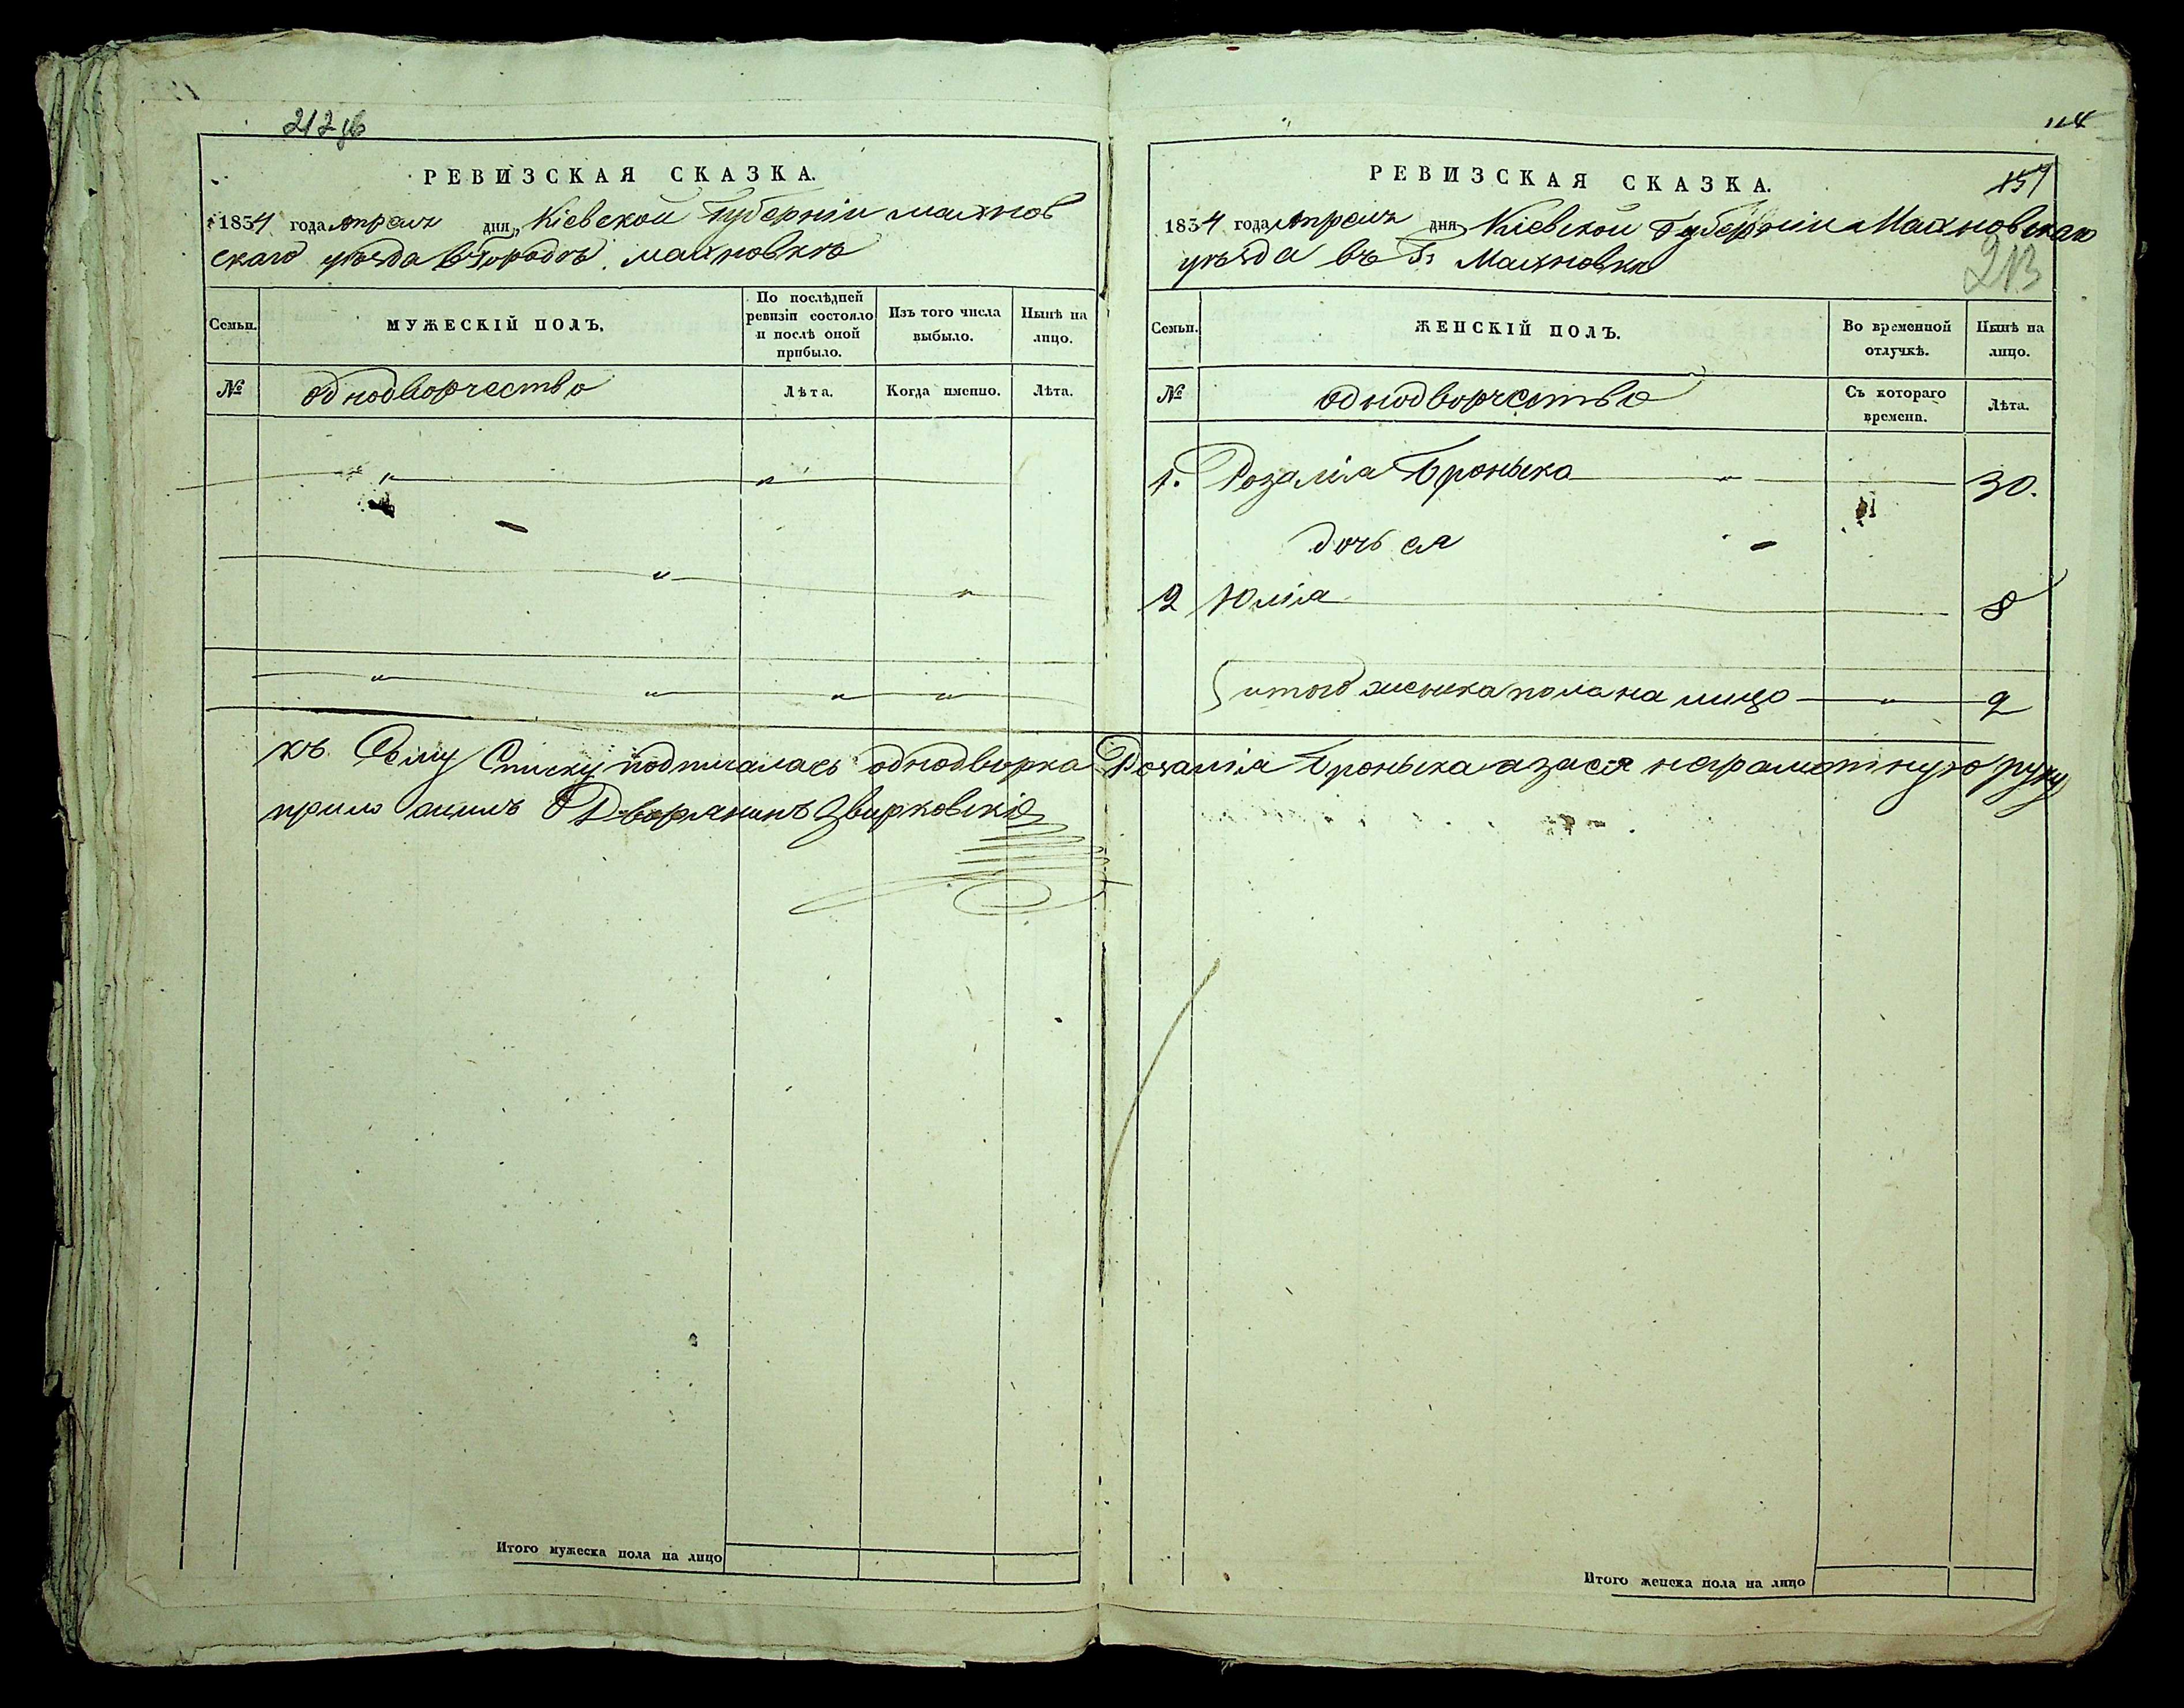 212 об
РЕВИЗСКАЯ СКАЗКА.
1834 года Апреля дня, Кіевской Губерніи махнов
скаго уѣзда въ Городѣ махновкѣ
Семьи.
МУЖЕСКІЙ ПОЛЪ.
По послѣдней ревизіи состояло и послѣ оной прибыло.
Изъ того числа выбыло.
Нынѣ на лицо.
№
однодворчество
Лѣта.
Когда именно.
Лѣта.
114
РЕВИЗСКАЯ СКАЗКА.
157
1834 года Апреля дня Кіевской Губерніи Махновскаго
уѣзда въ Гз Махновки
213
Семьи.
ЖЕНСКІЙ ПОЛЪ.
Во временной отлучкѣ.
Нынѣ на лицо.
№
однодворчество
Съ котораго времена.
Лѣта.
1. Розалія Броньска 30.
дочь ея
2 Юлія 8
итого женска пола на лицо 2
къ Сему Списку подписалась однодворка Розалія Броньска а за ея неграмотную руку
приложилъ Дворянинъ Звирковскій
Итого мужеска пола на лицо
Итого женска пола на лицо